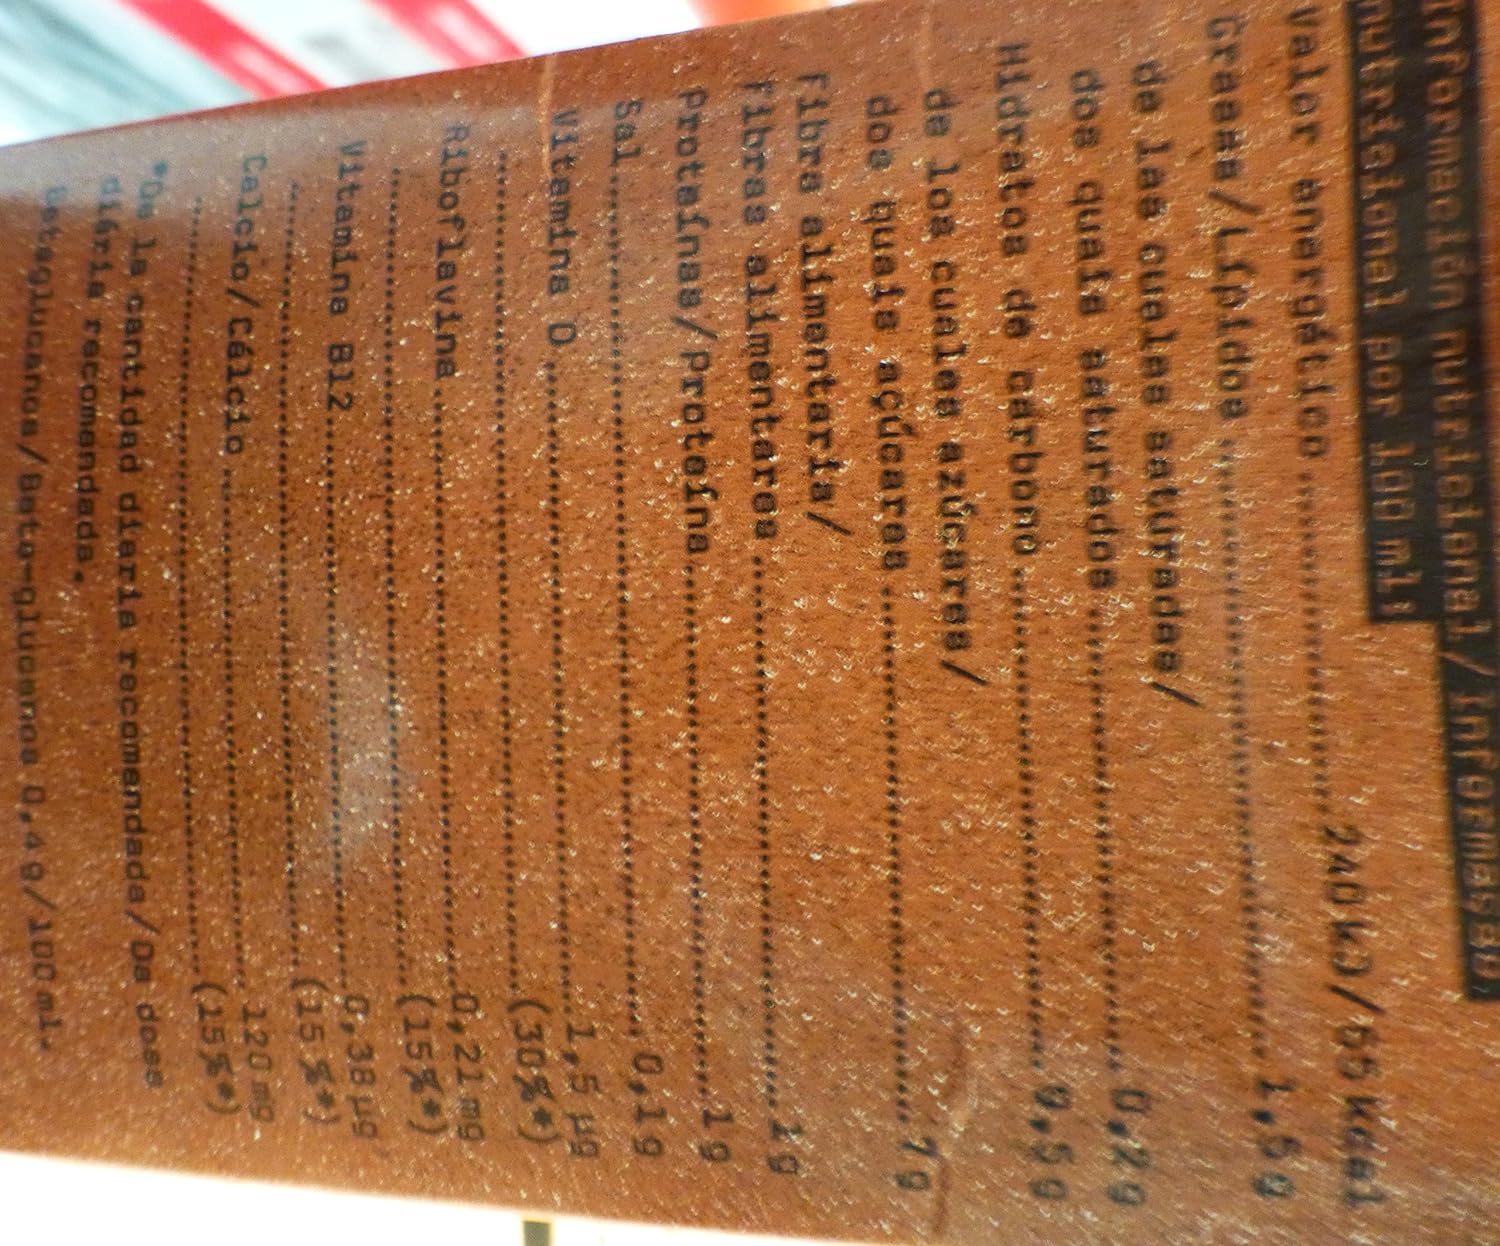 Información nutricional/Informação
nutricional por 100 ml:
Valor energético ........ 240kJ/65kcal
Grasas/Lípidos ........ 1,5g
de las cuales saturadas/
dos quais saturados ........ 0,2g
Hidratos de carbono ........ 9,5g
de los cuales azúcares/
dos quais açúcares ........ 7g
Fibra alimentaria/
Fibras alimentares ........ 1g
Proteínas/Proteína ........ 1g
Sal ........ 0,1g
Vitamina D ........ 1,5 µg
........ (30%*)
Riboflavina ........ 0,21mg
........ (15%*)
Vitamina B12 ........ 0,38µg
........ (15%*)
Calcio/Cálcio ........ 120mg
........ (15%*)
*De la cantidad diaria recomendada/Da dose
diária recomandada.
Betaglucanos/Beta-glucanos 0,4g/100ml.